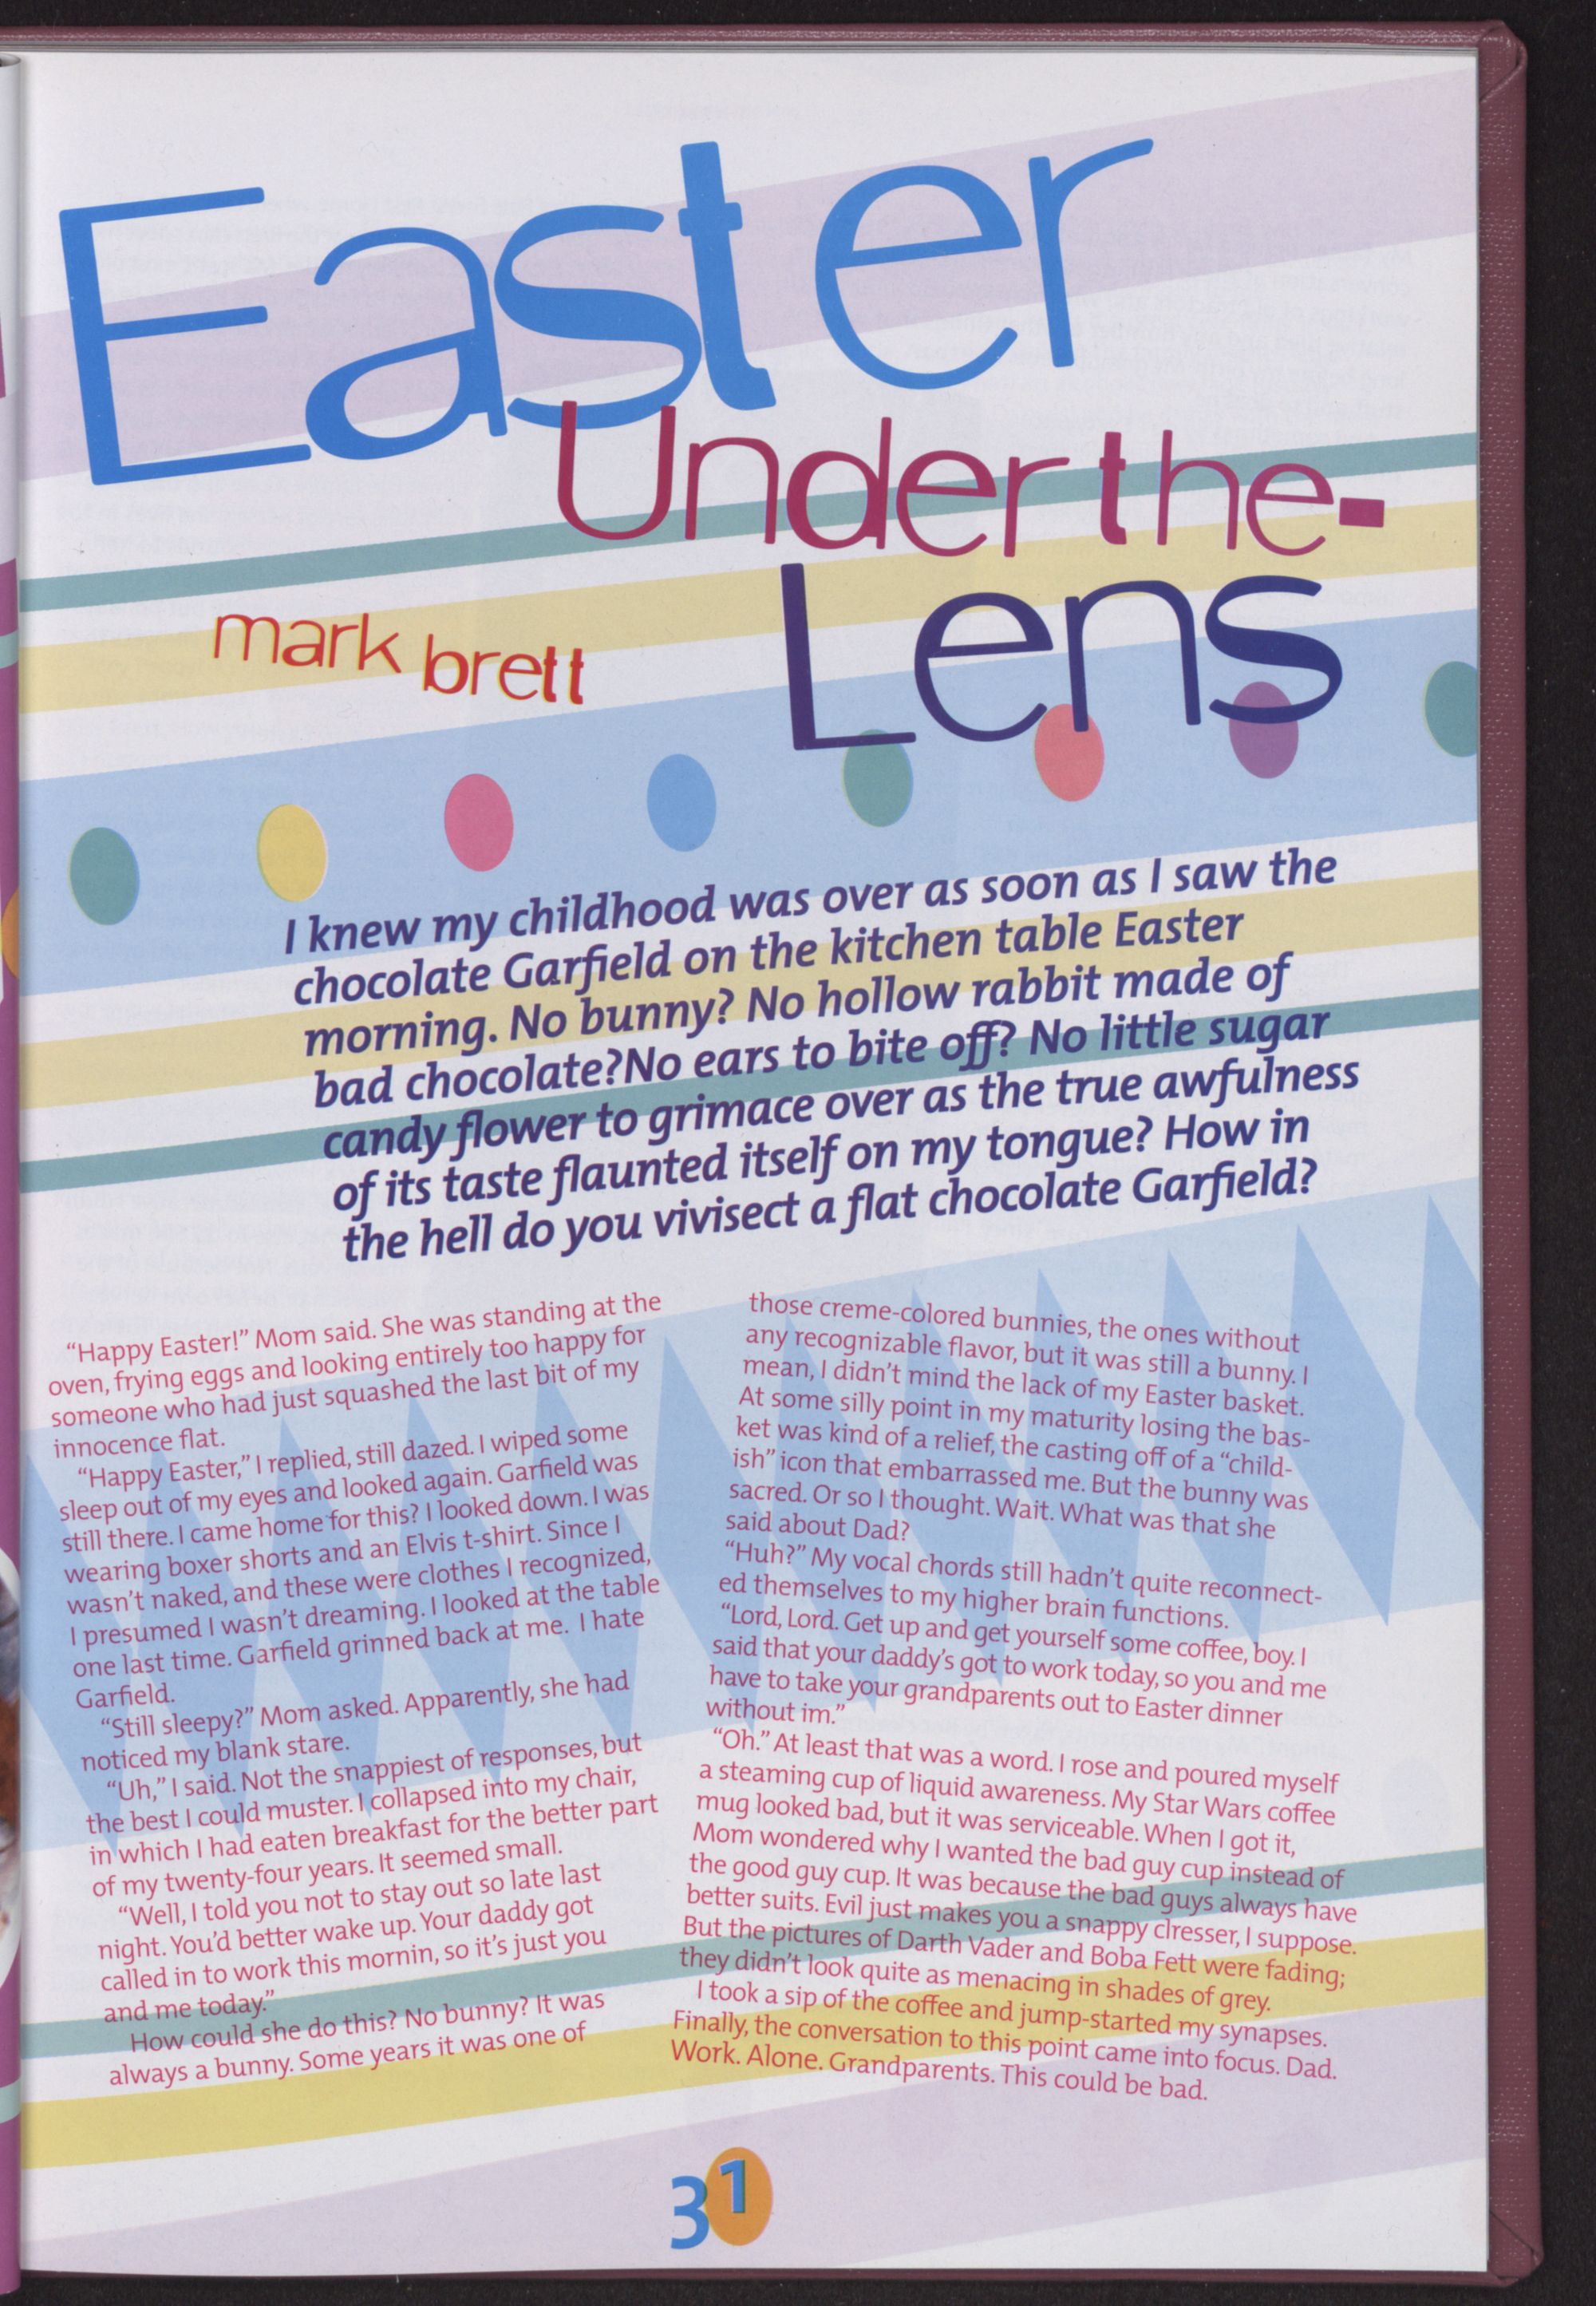 Easter
Under the-
Lens
mark brett
I knew my childhood was over as soon as I saw the
chocolate Garfield on the kitchen table Easter
morning. No bunny? No hollow rabbit made of
bad chocolate?No ears to bite off? No little sugar
candy flower to grimace over as the true awfulness
of its taste flaunted itself on my tongue? How in
the hell do you vivisect a flat chocolate Garfield?
“Happy Easter!” Mom said. She was standing at the
oven, frying eggs and looking entirely too happy for
someone who had just squashed the last bit of my
innocence flat.
“Happy Easter,” I replied, still dazed. I wiped some
sleep out of my eyes and looked again. Garfield was
still there. I came home for this? I looked down. I was
wearing boxer shorts and an Elvis t-shirt. Since I
wasn’t naked, and these were clothes I recognized,
I presumed I wasn’t dreaming. I looked at the table
one last time. Garfield grinned back at me. I hate
Garfield.
“Still sleepy?” Mom asked. Apparently, she had
noticed my blank stare.
“Uh,” I said. Not the snappiest of responses, but
the best I could muster. I collapsed into my chair,
in which I had eaten breakfast for the better part
of my twenty-four years. It seemed small.
“Well, I told you not to stay out so late last
night. You’d better wake up. Your daddy got
called in to work this mornin, so it’s just you
and me today.”
How could she do this? No bunny? It was
always a bunny. Some years it was one of
those creme-colored bunnies, the ones without
any recognizable flavor, but it was still a bunny. I
mean, I didn’t mind the lack of my Easter basket.
At some silly point in my maturity losing the bas-
ket was kind of a relief, the casting off of a “child-
ish” icon that embarrassed me. But the bunny was
sacred. Or so I thought. Wait. What was that she
said about Dad?
“Huh?” My vocal chords still hadn’t quite reconnect-
ed themselves to my higher brain functions.
“Lord, Lord. Get up and get yourself some coffee, boy. I
said that your daddy’s got to work today, so you and me
have to take your grandparents out to Easter dinner
without im.”
“Oh.” At least that was a word. I rose and poured myself
a steaming cup of liquid awareness. My Star Wars coffee
mug looked bad, but it was serviceable. When I got it,
Mom wondered why I wanted the bad guy cup instead of
the good guy cup. It was because the bad guys always have
better suits. Evil just makes you a snappy clresser, I suppose.
But the pictures of Darth Vader and Boba Fett were fading;
they didn’t look quite as menacing in shades of grey.
I took a sip of the coffee and jump-started my synapses.
Finally, the conversation to this point came into focus. Dad.
Work. Alone. Grandparents. This could be bad.
31